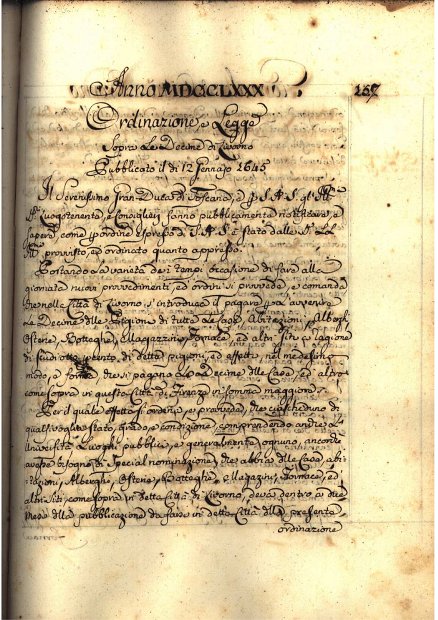 Anno MDCCLXXX
157
Ordinazione, e Legge
Sopra le Decime di Livorno
Pubblicato il dì 12 Gennajo 1645
Il Serenissimo Gran Duca di Toscana, e p S. A. S. gl'
Luogotenente, e Consiglieri fanno pubblicamente notificare, e
sapere, come p ordine espresso di S. A. S. è stato dalle
provvisto, ed ordinato quanto appresso.
Portando la varietà de i tempi occasione di fare alla
giornata nuovi provvedimenti, ed ordini si provvede, e comanda
che nella Città di Livorno s'introduca il pagare p l'avvenire
le Decime delle pigioni di tutte le Case, Abitazioni, Alberghi,
Osterie, Botteghe, Magazzini, Fornace, ed altri Siti a ragione
di scudi otto p cento, di dette pigioni, ed affitti, nel medesimo
modo, e forma, che si pagano le Decime delle Case, ed altro
come sopra in questa Città di Firenze in somma maggiore.
Per il quale effetto si ordina, e provvede, che ciascheduno di
qualsivoglia stato, grado, e condizione, comprendendo anche le
Università, Luoghi pubblici, e generalmente ognuno, ancorchè
avesse bisogno di special nominazione, che abbia delle Case, abi-
tazioni, Alberghi, Osterie, Botteghe, Magazzini, Fornace, ed
altri Siti, come sopra in detta Città di Livorno, deva dentro a due
Mesi dalla pubblicazione da farsi in detta Città della presente
ordinazione